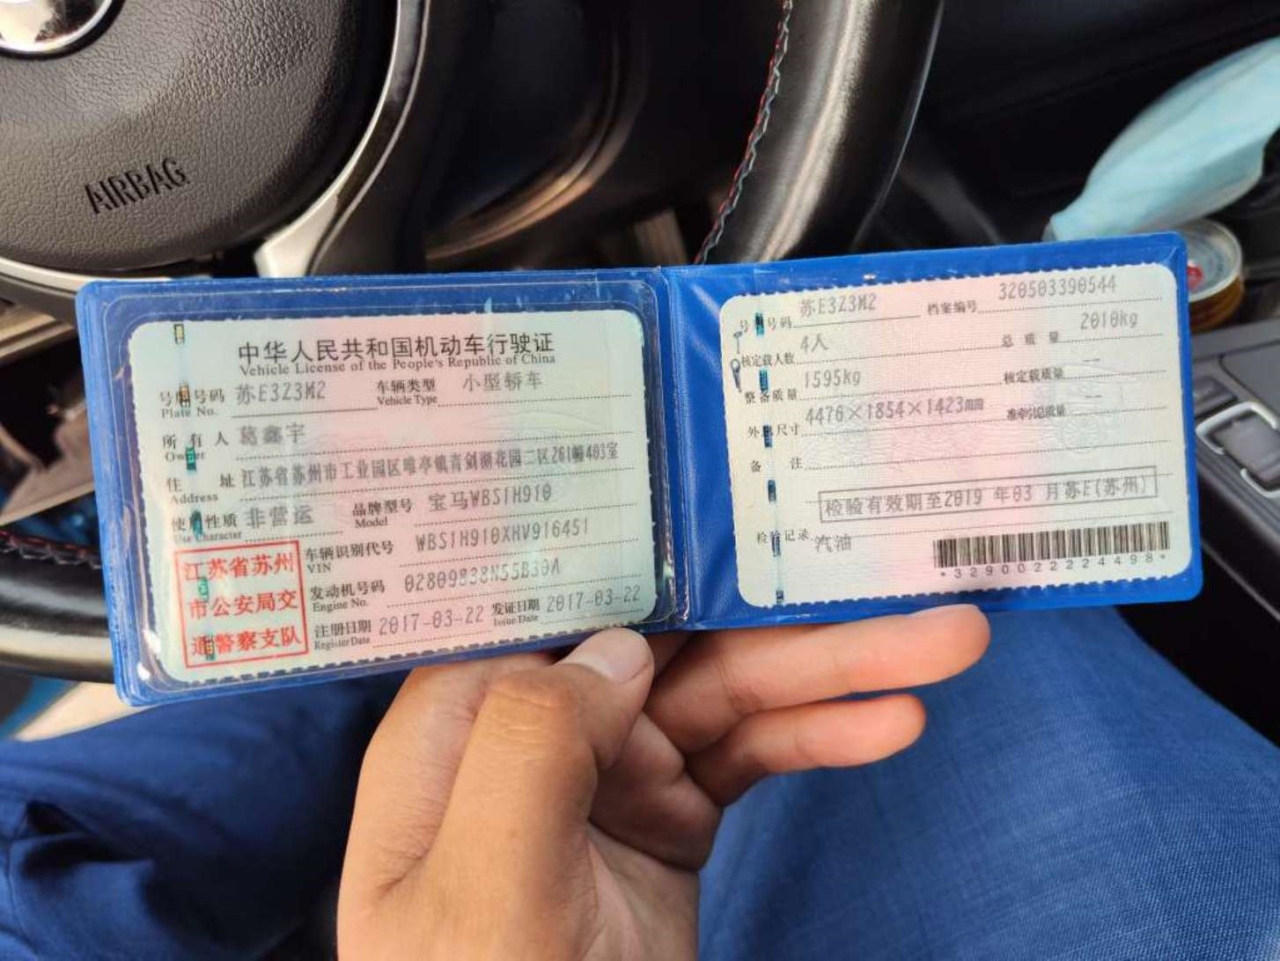 AIRBAG
中华人民共和国机动车行驶证
Vehicle License of the People's Republic of China
号牌号码 苏E3Z3M2 车辆类型 小型轿车
Plate No. Vehicle Type
所有人 葛鑫宇
Owner
住址 江苏省苏州市工业园区唯亭镇青剑湖花园二区261幢403室
Address
使用性质 非营运 品牌型号 宝马WBS1H910
Use Character Model
车辆识别代号 WBS1H910XHV916451
VIN
发动机号码 02809838N55B30A
Engine No.
注册日期 2017-03-22 发证日期 2017-03-22
Register Date Issue Date
江苏省苏州
市公安局交
通警察支队
号牌号码 苏E3Z3M2 档案编号 320503390544
核定载人数 4人 总质量 2010kg
整备质量 1595kg 核定载质量 --
外廓尺寸 4476×1854×1423mm 准牵引总质量 --
备注
检验有效期至2019 年03 月苏E(苏州)
检验记录 汽油
*3290022224498*